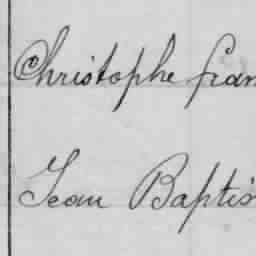 Christophe fran
Jean Baptis